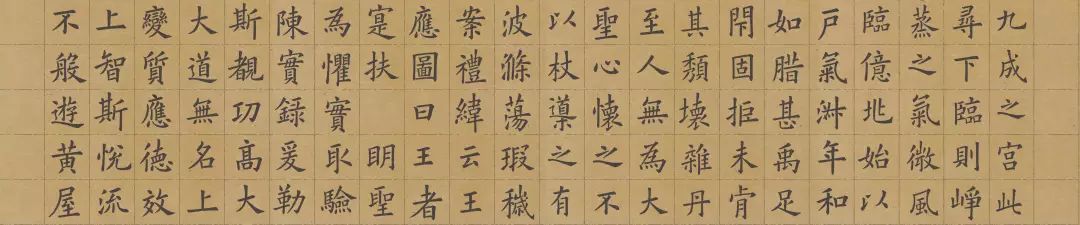 九成之宫此
尋下臨則崢
蒸之氣微風
臨億兆始以
戶氣淑年和
如腊甚禹足
閇固拒未肯
其頽壞雜丹
至人無為大
聖心懷之不
以杖導之有
波滌蕩瑕穢
案禮緯云王
應圖曰王者
寔扶明聖
為懼實取驗
陳實録爰勒
斯覩功高大
大道無名上
變質應德效
上智斯悅流
不般遊黃屋